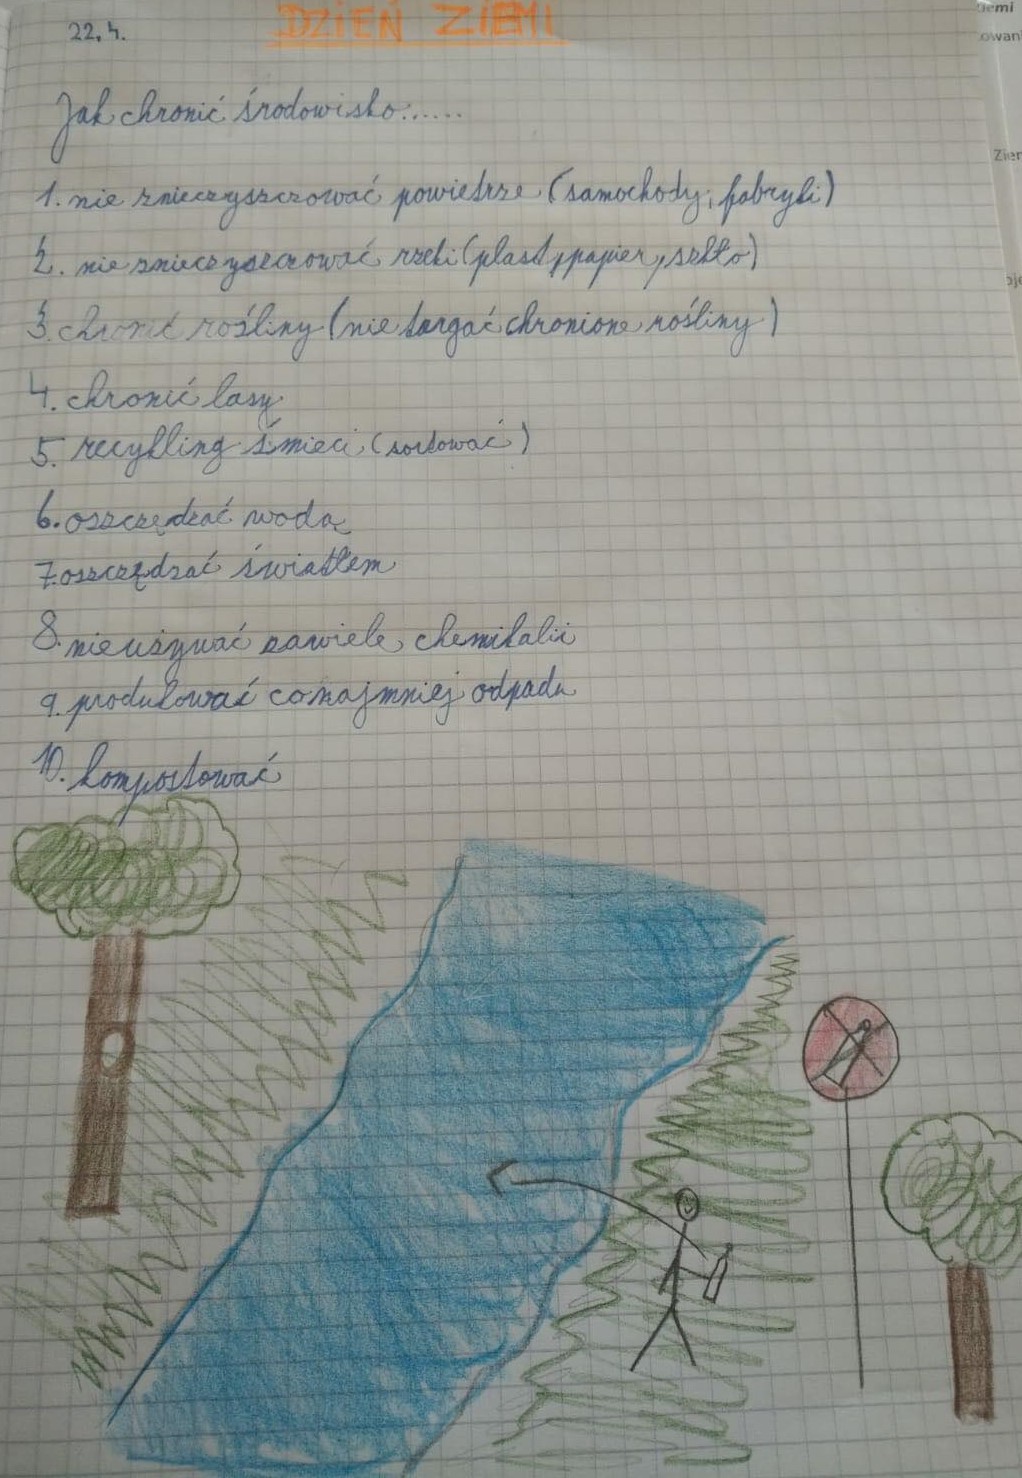 22.4.
DZIEŃ ZIEMI
Jak chronić środowisko......
1. nie znieczyszczować powietrze (samochody, fabryki)
2. nie znieczyszczować rzeki (plast, papier, szkło)
3. chronić rośliny (nie targać chronione rośliny)
4. chronić lasy
5. recykling śmieci (sortować)
6. oszczędzać wodą
7. oszczędzać światłem
8. nie używać zawiele chemikalii
9. produkować conajmniej odpadu
10. kompostować
iemi
owani
Ziem